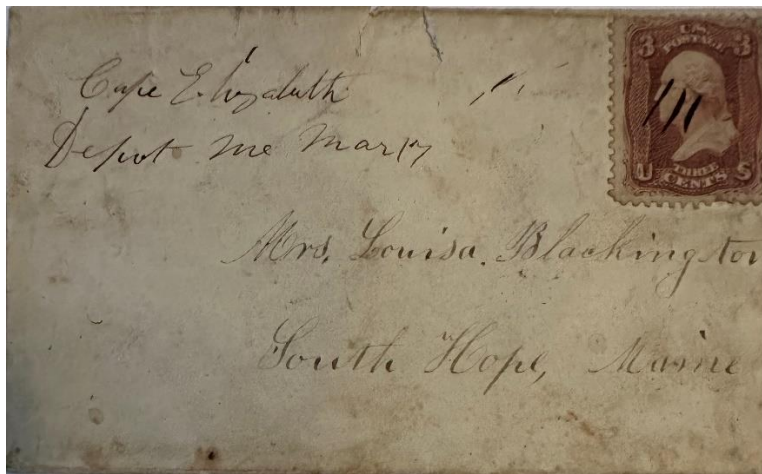 Cape Elizabeth
Depot Me Mar 17
3 U.S. POSTAGE 3
U THREE CENTS S
Mrs. Louisa. Blackington
South Hope, Maine